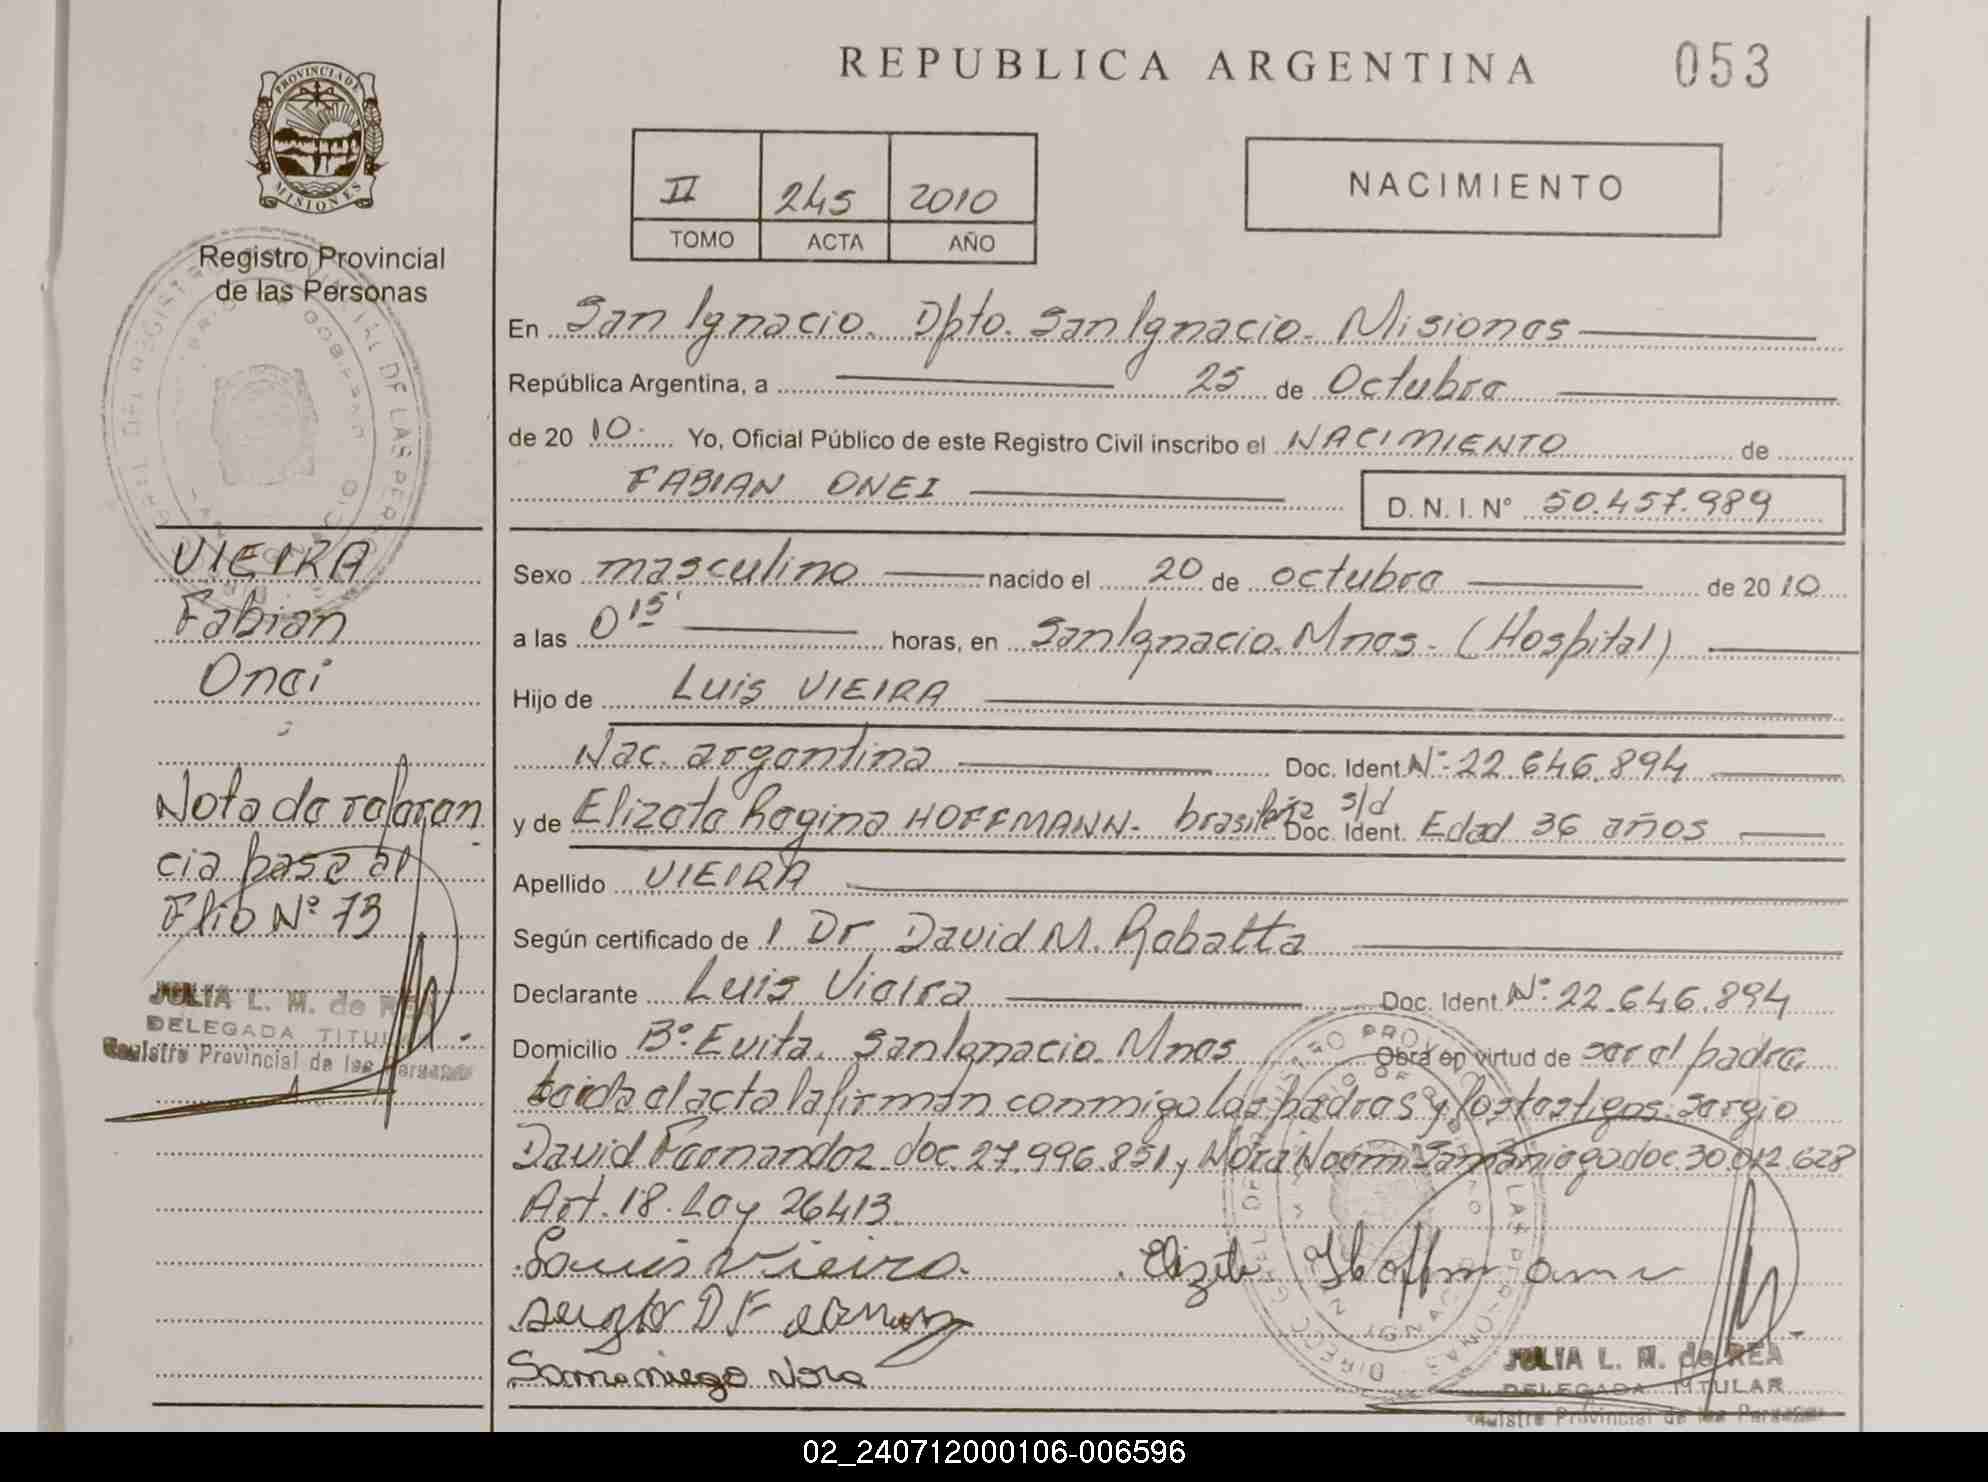 REPUBLICA ARGENTINA
053
PROVINCIA DE
MISIONES
Registro Provincial
de las Personas
II 245 2010
TOMO ACTA AÑO
NACIMIENTO
En San Ignacio. Dpto. San Ignacio. Misiones
República Argentina, a 25 de Octubre
de 2010. Yo, Oficial Público de este Registro Civil inscribo el NACIMIENTO de
FABIAN ONEI
D. N. I. N° 50.457.989
VIEIRA
Fabian
Onei
Sexo masculino nacido el 20 de octubre de 2010
a las 0 15' horas, en San Ignacio. Mnes. (Hospital)
Hijo de Luis VIEIRA
Nac. argentina Doc. Ident. N° 22.646.894
y de Elizete Regina HOFFMANN. brasileña s/d Doc. Ident. Edad 36 años
Apellido VIEIRA
Según certificado de 1 Dr David M. Rabatta
Declarante Luis Vieira Doc. Ident. N° 22.646.894
Domicilio B° Evita. San Ignacio. Mnes Obra en virtud de ser el padre
Leida el acta la firman conmigo los padres y los testigos: Sergio
David Fernandez doc. 27.996.851 y Nora Noemi Samaniego doc 30 012.628
Art. 18. Ley 26413
Nota de referen
cia pase al
Flio N° 73
JULIA L. M. de REA
DELEGADA TITULAR
Registro Provincial de las Personas
Luis Vieira.
Elizete Hoffmann
Samaniego Nora
JULIA L. M. de REA
DELEGADA TITULAR
Registro Provincial de las Personas
02_240712000106-006596